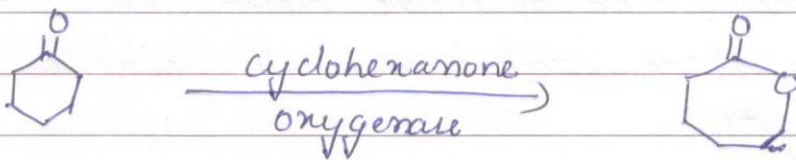 O
O
cyclohexanone
O
oxygenase